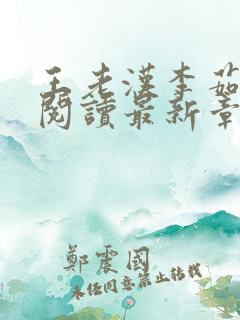 王老漢李茹
閱讀最新章
鄭震國
未经同意禁止转载